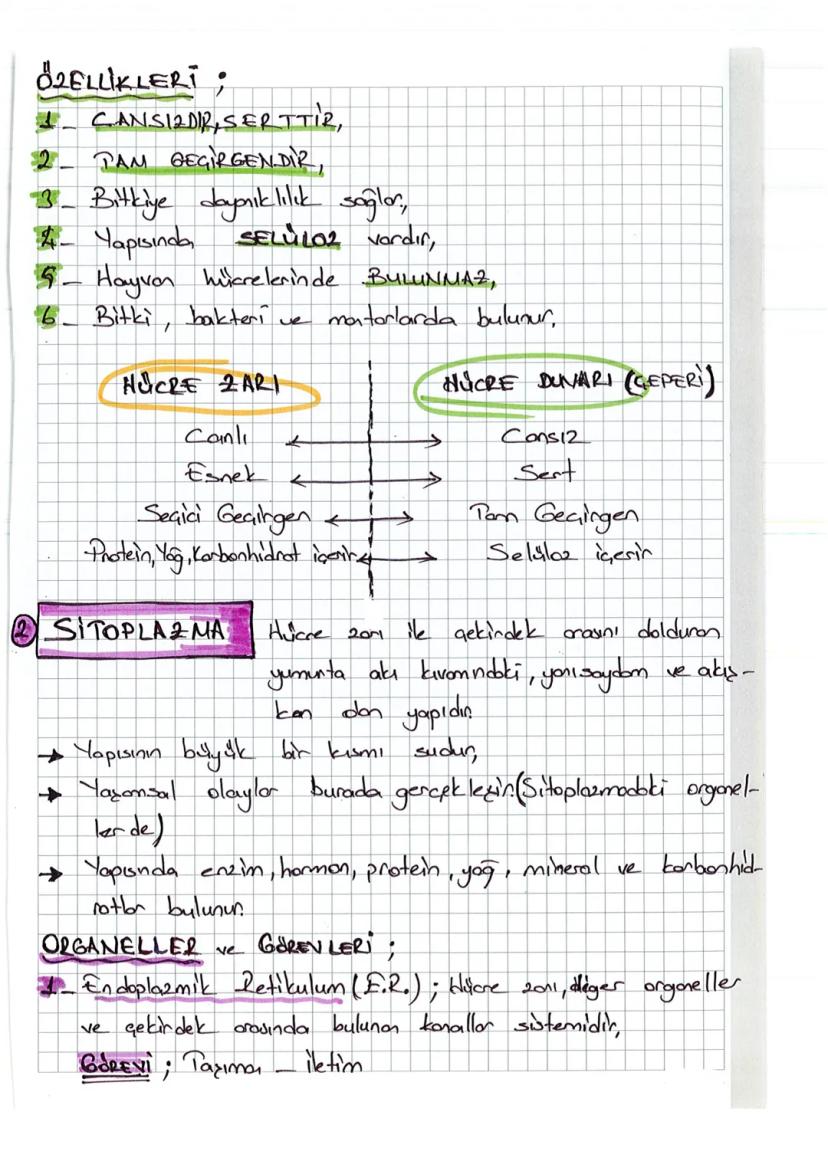 ÖZELLİKLERİ ;
1- CANSIZDIR, SERTTİR,
2- TAM GEÇİRGENDİR,
3- Bitkiye dayanıklılık sağlar,
4- Yapısında SELÜLOZ vardır,
5- Hayvan hücrelerinde BULUNMAZ,
6- Bitki, bakteri ve mantarlarda bulunur.
HÜCRE ZARI HÜCRE DUVARI (ÇEPERİ)
Canlı ↔ Cansız
Esnek ↔ Sert
Seçici Geçirgen ↔ Tam Geçirgen
Protein, Yağ, Karbonhidrat içerir ↔ Selüloz içerir
2 SİTOPLAZMA Hücre zarı ile çekirdek arasını dolduran
yumurta akı kıvamındaki, yarı saydam ve akış-
kan olan yapıdır.
→ Yapısının büyük bir kısmı sudur,
→ Yaşamsal olaylar burada gerçekleşir. (Sitoplazmadaki organel-
lerde)
→ Yapısında enzim, hormon, protein, yağ, mineral ve karbonhid-
ratlar bulunur.
ORGANELLER ve GÖREVLERİ ;
1- Endoplazmik Retikulum (E.R.) ; Hücre zarı, diğer organeller
ve çekirdek arasında bulunan kanallar sistemidir,
GÖREVİ ; Taşıma - iletim